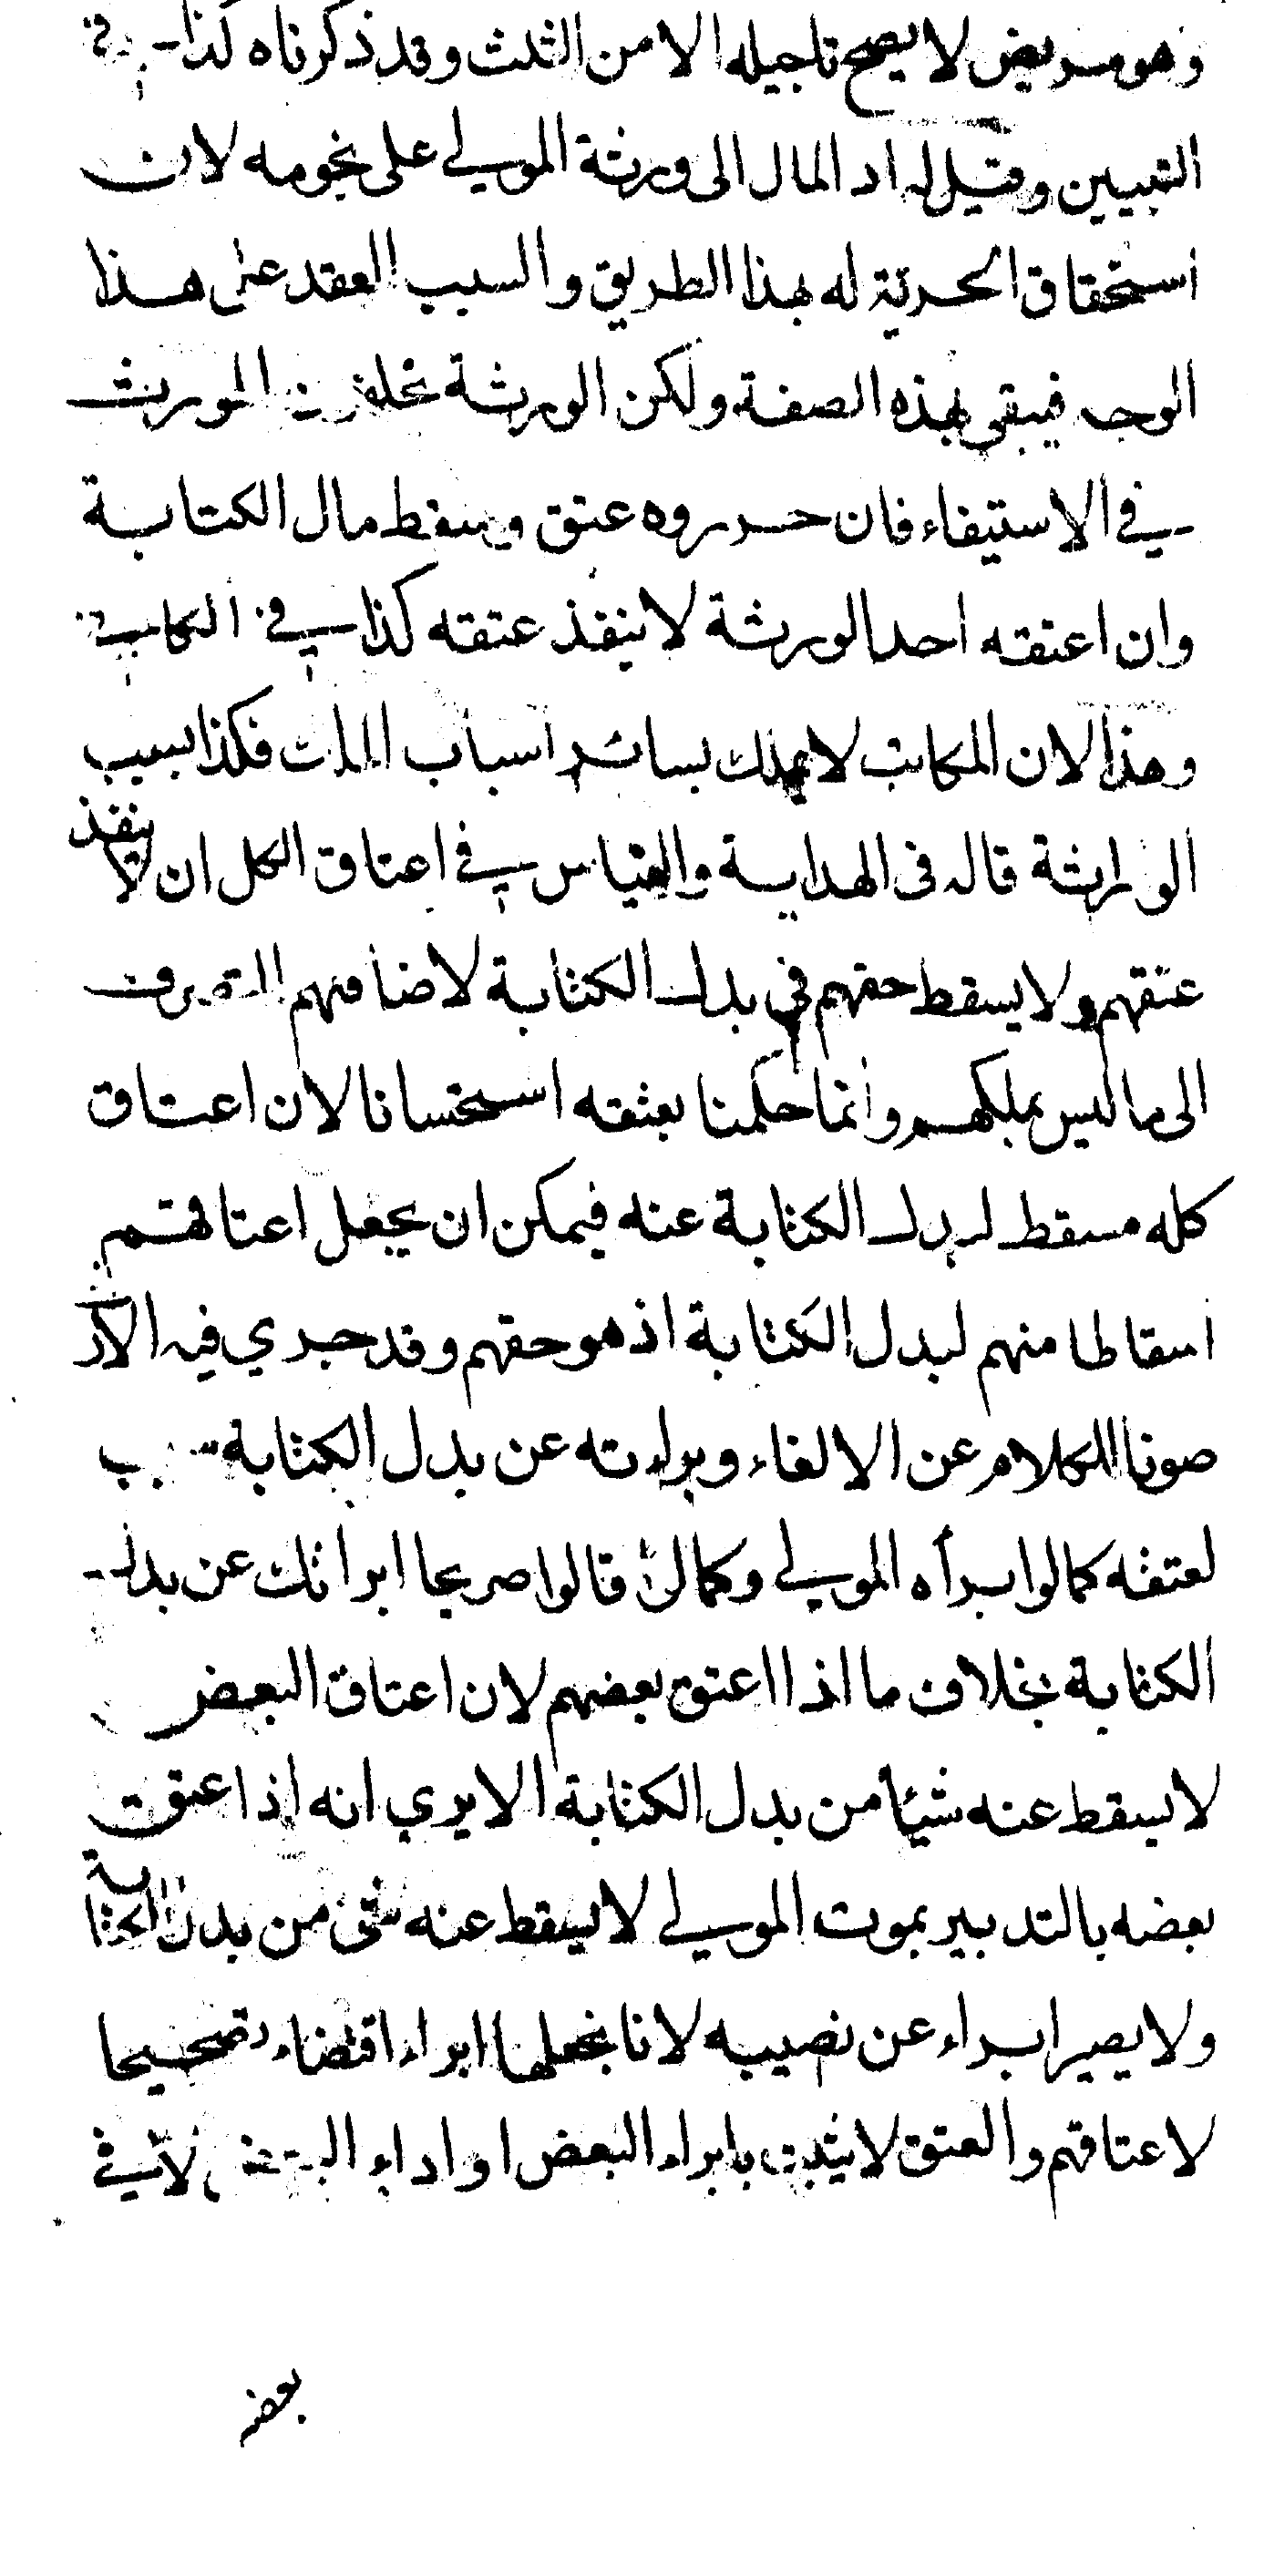 وهو مريض لا يصح تاجيله الا من الثلث وقد ذكرناه كذا في
التبيين وقيل له اد المال الى ورثة المولي على نجومه لان
استحقاق الحرية له بهذا الطريق والسبب العقد على هذا
الوجه فيبقى بهذه الصفة ولكن الورثة تخلفون المورث
في الاستيفاء فان حرروه عتق وسقط مال الكتابة
وان اعتقه احد الورثة لا ينفذ عتقه كذا في الكافي
وهذا لان المكاتب لا يملك بسائر اسباب الملك فكذا بسبب
الوراثة قاله في الهداية والقياس في اعتاق الكل ان لا ينفذ
عتقهم ولا يسقط حقهم في بدل الكتابة لاضافتهم التصرف
الى ما ليس بملكهم وانما حكمنا بعتقه استحسانا لان اعتاق
كله مسقط لبدل الكتابة عنه فيمكن ان يجعل اعتاقهم
اسقاطا منهم لبدل الكتابة اذ هو حقهم وقد جري فيه الارث
صونا للكلام عن الالغاء وبراءته عن بدل الكتابة سبب
لعتقه كما لو ابرأه المولي وكما لو قالوا صريحا ابراناك عن بدل
الكتابة بخلاف ما اذا اعتق بعضهم لان اعتاق البعض
لا يسقط عنه شيأ من بدل الكتابة الا يري انه اذا عتق
بعضه بالتدبير بموت المولي لا يسقط عنه شئ من بدل الكتابة
ولا يصير ابراء عن نصيبه لانا نجعلها ابراء اقتضاء تصحيحا
لاعتاقهم والعتق لا يثبت بابراء البعض او اداء البعض لا في
بعضه